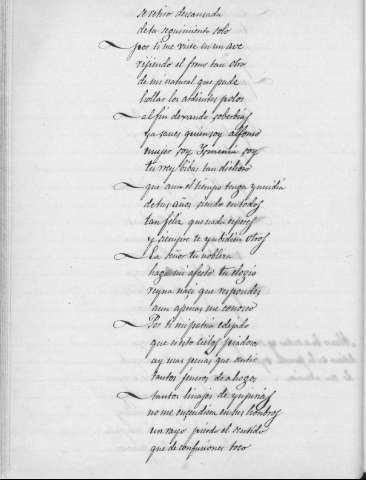 se retiro descansada
de tu seguimiento solo
por ti me viste en un ave
rijiendo el freno tan otro
de mi natural que pude
hollar los ardientes polos
al fin dexando soberbias
ya saues quien soy alfonso
mujer soy Ysmenia soy
tu rey vibas tan dichoso
que aun el tiempo tenga ynuidia
de tus años siendo en todos
tan feliz que nada esperes
y siempre te ynbidien otros
La señor tu nobleza
haze mi afecto tu elogio
reyna naci que respondes
aun apenas me conozco
Por ti mi patria e dejado
que es esto cielos piadosos
ay mas penas que sentir
tantos jeneros de ahogos
tantos linajes de ynjurias
no me encienden en sus hombros
un rayo pierdo el sentido
que de confusiones toco